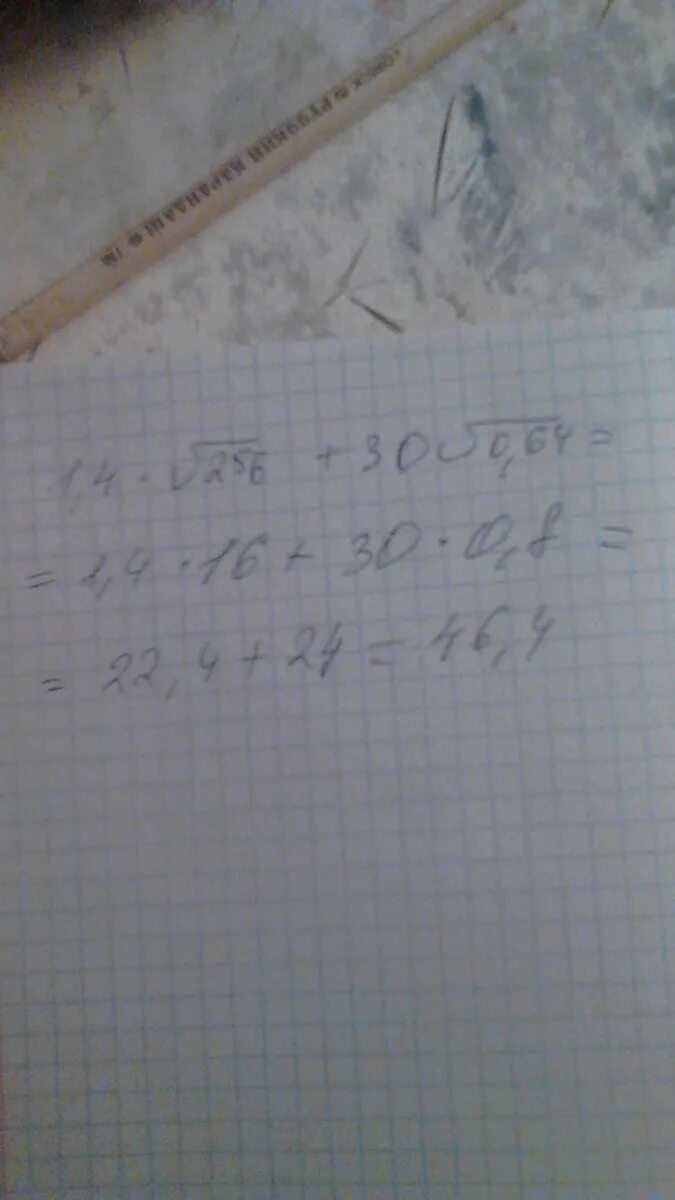 РУЧНОЙ КАРАНДАШ
1,4 · √256 + 30√0,64 =
= 1,4 · 16 + 30 · 0,8 =
= 22,4 + 24 = 46,4